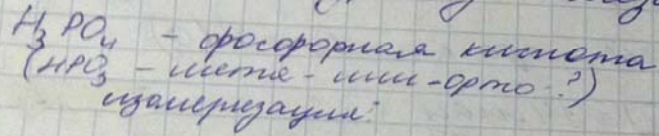 H₃PO₄ - фосфорная кислота
(HPO₃ - мета- или -орто?)
изомеризация: